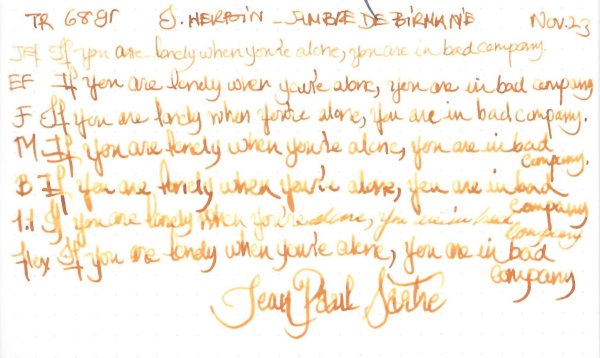 TR 68gr J. HERBIN - AMBRE DE BIRMANIE Nov. 23
JEF If you are lonely when you're alone, you are in bad company.
EF If you are lonely when you're alone, you are in bad company
F If you are lonely when you're alone, you are in bad company.
M If you are lonely when you're alone, you are in bad company.
B If you are lonely when you're alone, you are in bad company
1.1 If you are lonely when you're alone, you are in bad company
flex If you are lonely when you're alone, you are in bad company
Jean Paul Sartre